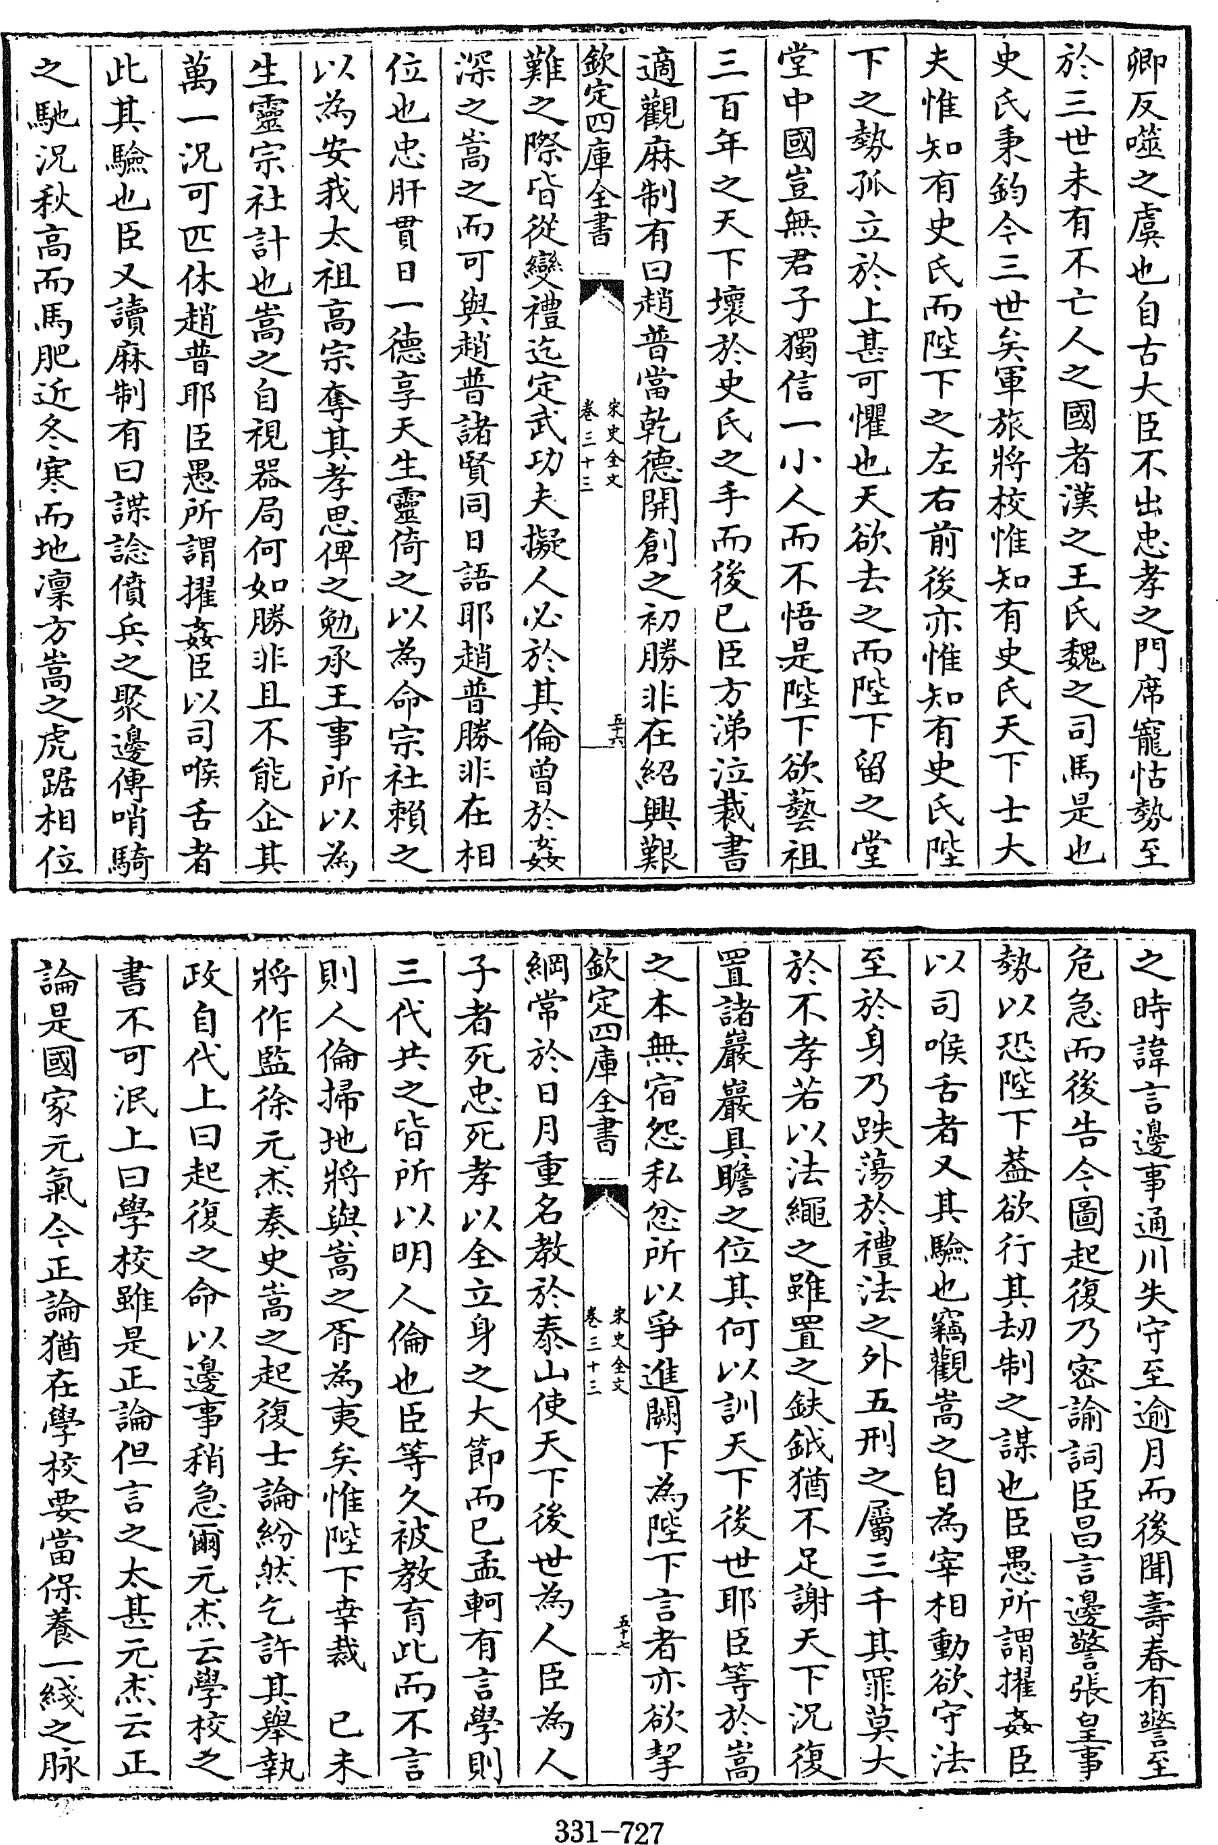 卿反噬之虞也自古大臣不出忠孝之門席寵怙勢至
於三世未有不亡人之國者漢之王氏魏之司馬是也
史氏秉鈞今三世矣軍旅將校惟知有史氏天下士大
夫惟知有史氏而陛下之左右前後亦惟知有史氏陛
下之勢孤立於上甚可懼也天欲去之而陛下留之堂
堂中國豈無君子獨信一小人而不悟是陛下欲藝祖
三百年之天下壞於史氏之手而後已臣方涕泣裁書
適觀麻制有曰趙普當乾德開創之初勝非在紹興艱
欽定四庫全書
宋史全文
卷三十三
五十六
難之際皆從變禮迄定武功夫擬人必於其倫曾於姦
深之嵩之而可與趙普諸賢同日語耶趙普勝非在相
位也忠肝貫日一德享天生靈倚之以為命宗社賴之
以為安我太祖高宗奪其孝思俾之勉承王事所以為
生靈宗社計也嵩之自視器局何如勝非且不能企其
萬一況可匹休趙普耶臣愚所謂擢姦臣以司喉舌者
此其驗也臣又讀麻制有曰諜諗憤兵之聚邊傳哨騎
之馳況秋高而馬肥近冬寒而地凜方嵩之虎踞相位
之時諱言邊事通川失守至逾月而後聞壽春有警至
危急而後告今圖起復乃密諭詞臣昌言邊警張皇事
勢以恐陛下蓋欲行其劫制之謀也臣愚所謂擢姦臣
以司喉舌者又其驗也竊觀嵩之自為宰相動欲守法
至於身乃跌蕩於禮法之外五刑之屬三千其罪莫大
於不孝若以法繩之雖置之鈇鉞猶不足謝天下況復
置諸巖巖具瞻之位其何以訓天下後世耶臣等於嵩
之本無宿怨私忿所以爭進闕下為陛下言者亦欲挈
欽定四庫全書
宋史全文
卷三十三
五十七
綱常於日月重名教於泰山使天下後世為人臣為人
子者死忠死孝以全立身之大節而已孟軻有言學則
三代共之皆所以明人倫也臣等久被教育此而不言
則人倫掃地將與嵩之胥為夷矣惟陛下幸裁　己未
將作監徐元杰奏史嵩之起復士論紛然乞許其舉執
政自代上曰起復之命以邊事稍急爾元杰云學校之
書不可泯上曰學校雖是正論但言之太甚元杰云正
論是國家元氣今正論猶在學校要當保養一綫之脉
331-727